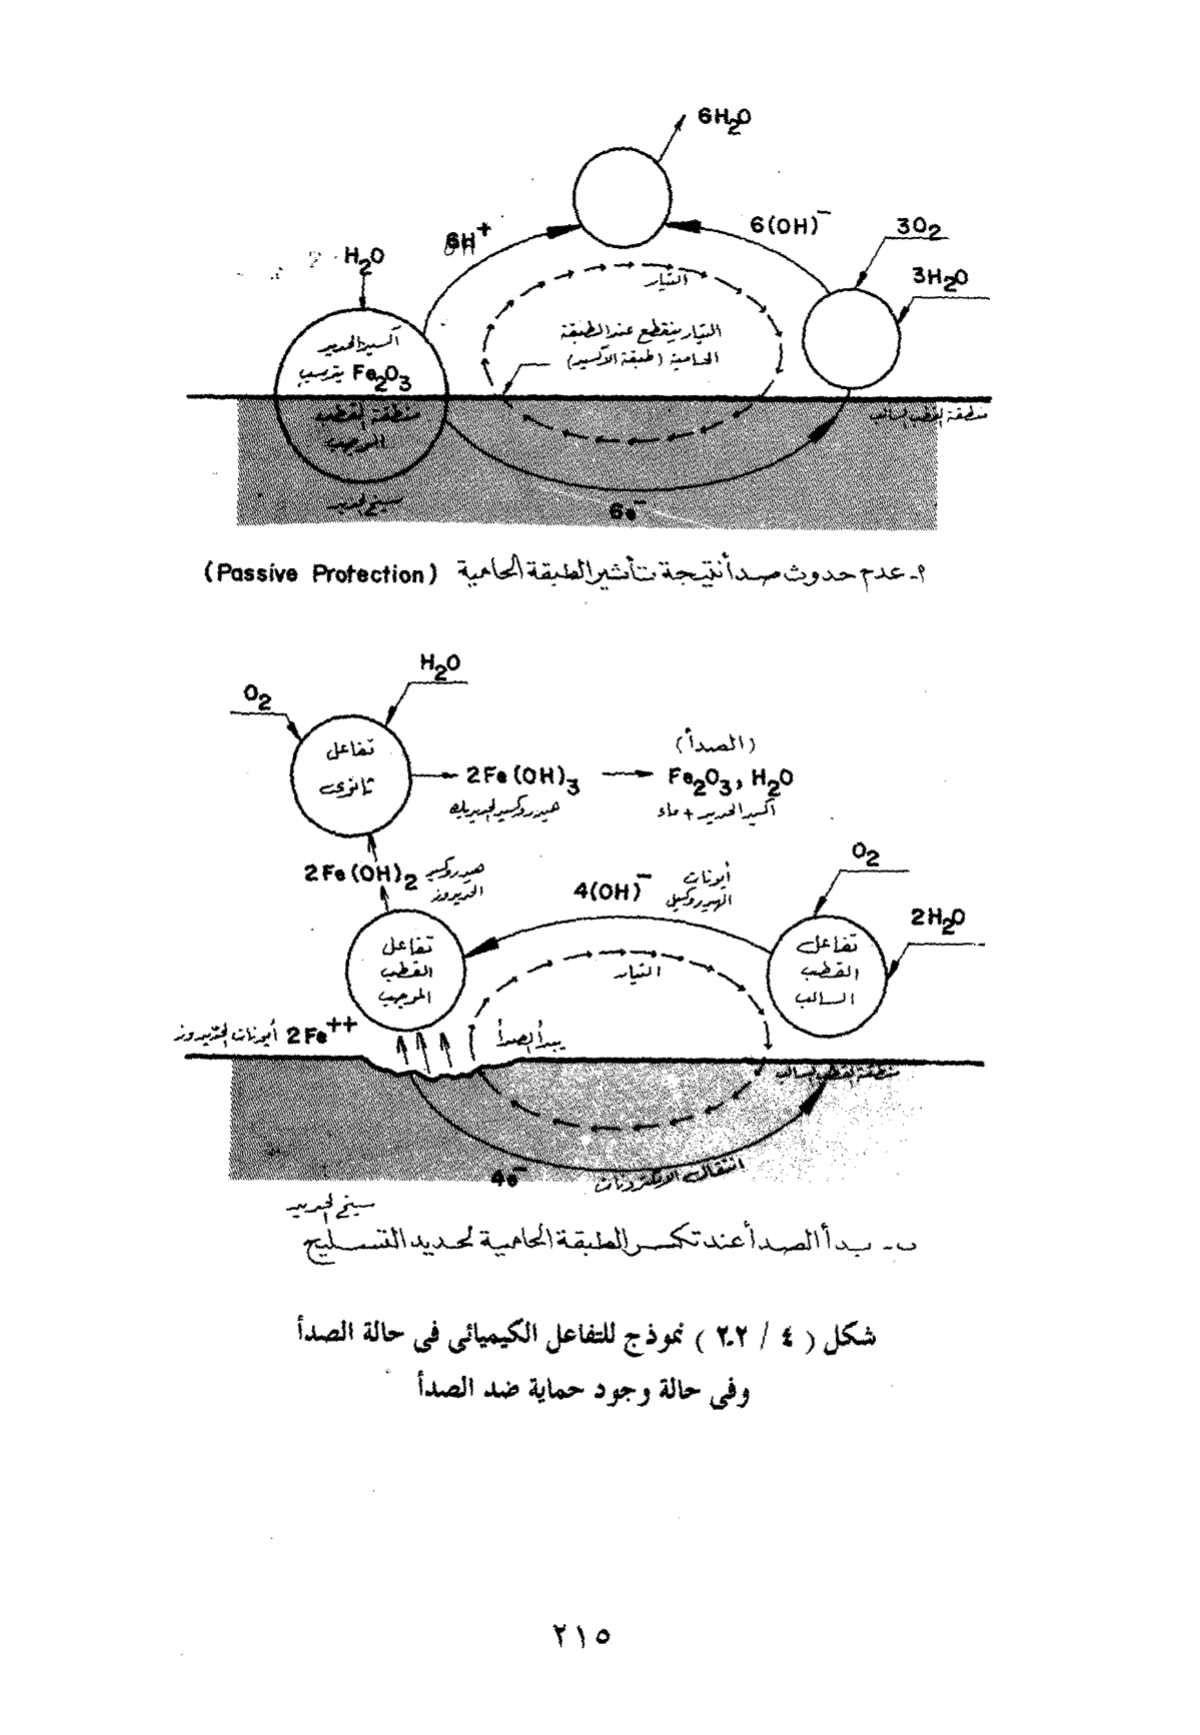 6H₂O
6H⁺
6(OH)⁻
3O₂
3H₂O
H₂O
التيار
التيار ينقطع عند الطبقة
الحامية (طبقة الأكسيد)
أكسيد الحديد
Fe₂O₃ يترسب
منطقة القطب
الموجب
منطقة القطب السالب
سيخ الحديد
6e⁻
أ- عدم حدوث صدأ نتيجة تأثير الطبقة الحامية (Passive Protection)
H₂O
O₂
تفاعل
ثانوى
2Fe(OH)₃
هيدروكسيد الحديديك
(الصدأ)
Fe₂O₃, H₂O
أكسيد الحديد + ماء
2Fe(OH)₂ هيدروكسيد
الحديدوز
4(OH)⁻
أيونات
الهيدروكسيل
O₂
2H₂O
تفاعل
القطب
الموجب
تفاعل
القطب
السالب
التيار
يبدأ الصدأ
2Fe⁺⁺ أيونات الحديدوز
منطقة القطب السالب
4e⁻
انتقال الالكترونات
سيخ الحديد
ب- بدأ الصدأ عند تكسر الطبقة الحامية لحديد التسليح
شكل (٤ / ٢-٢) نموذج للتفاعل الكيميائى فى حالة الصدأ
وفى حالة وجود حماية ضد الصدأ
٢١٥